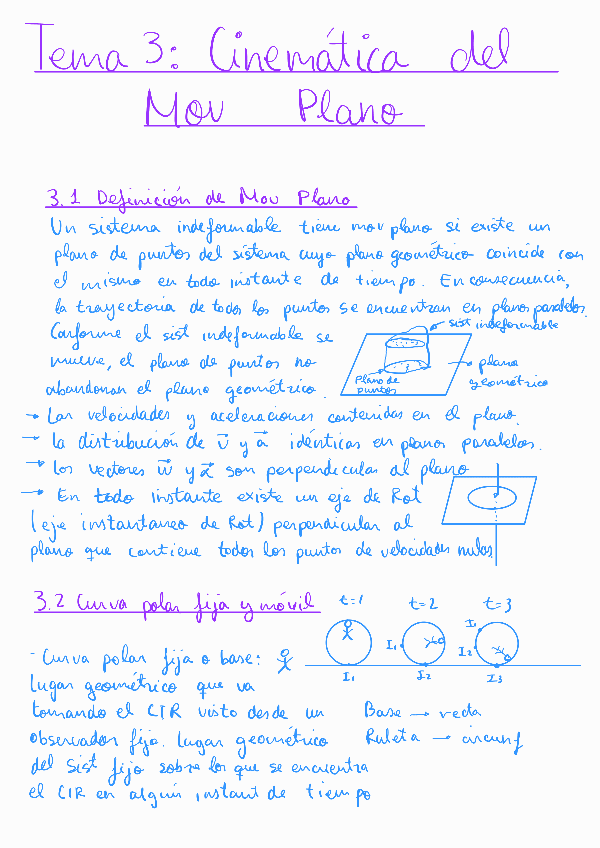 Tema 3: Cinemática del
Mov Plano
3.1 Definición de Mov Plano
Un sistema indeformable tiene mov plano si existe un
plano de puntos del sistema cuyo plano geométrico coincide con
el mismo en todo instante de tiempo. En consecuencia,
la trayectoria de todos los puntos se encuentran en planos paralelos.
Conforme el sist indeformable se
mueve, el plano de puntos no
abandonan el plano geométrico.
sist indeformable
plano
geométrico
Plano de
puntos
→ Las velocidades y aceleraciones contenidas en el plano.
→ la distribución de v⃗ y a⃗ idénticas en planos paralelos.
→ los vectores w⃗ y α⃗ son perpendiculas al plano
→ En todo instante existe un eje de Rot
(eje instantaneo de Rot) perpendicular al
plano que contiene todos los puntos de velocidades nulas.
3.2 Curva polar fija y móvil
t=1 t=2 t=3
I₁ I₁ I₂ I₁ I₂ I₃
- Curva polar fija o base:
lugar geométrico que va
tomando el CIR visto desde un
observador fijo. lugar geométrico
del sist fijo sobre los que se encuentra
el CIR en algún instant de tiempo
Base → recta
Ruleta → circunf